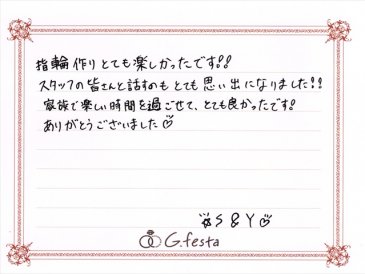 指輪作りとても楽しかったです!!
スタッフの皆さんと話すのもとても思い出になりました!!
家族で楽しい時間を過ごせて、とても良かったです!
ありがとうございました♡
☆S&Y♡
G.festa